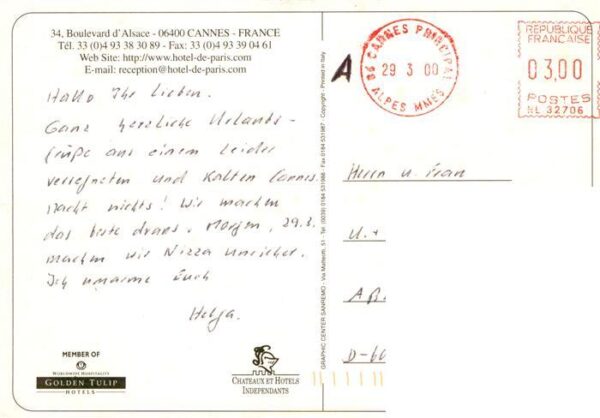 34, Boulevard d'Alsace - 06400 CANNES - FRANCE
Tél. 33 (0)4 93 38 30 89 - Fax: 33 (0)4 93 39 04 61
Web Site: http://www.hotel-de-paris.com
E-mail: reception@hotel-de-paris.com
Hallo Ihr Lieben.
Ganz herzliche Urlaubs-
grüße aus einem leider
verregneten und kalten Cannes.
Macht nichts! Wir machen
das beste draus. Morgen, 29.3.
machen wir Nizza unsicher.
Ich umarme Euch
Helga.
MEMBER OF
WORLDWIDE HOSPITALITY
GOLDEN TULIP
HOTELS
CHATEAUX ET HOTELS
INDEPENDANTS
GRAPHIC CENTER SANREMO - Via Matteotti, 51 - Tel. 0184 531988 - Fax 0184 531987 - Copyright - Printed in Italy
A
06 CANNES PRINCIPAL
29 3 00
ALPES MMES
REPUBLIQUE
FRANCAISE
03,00
POSTES
NL 32706
Herrn u. Frau
U. +
A
D-60